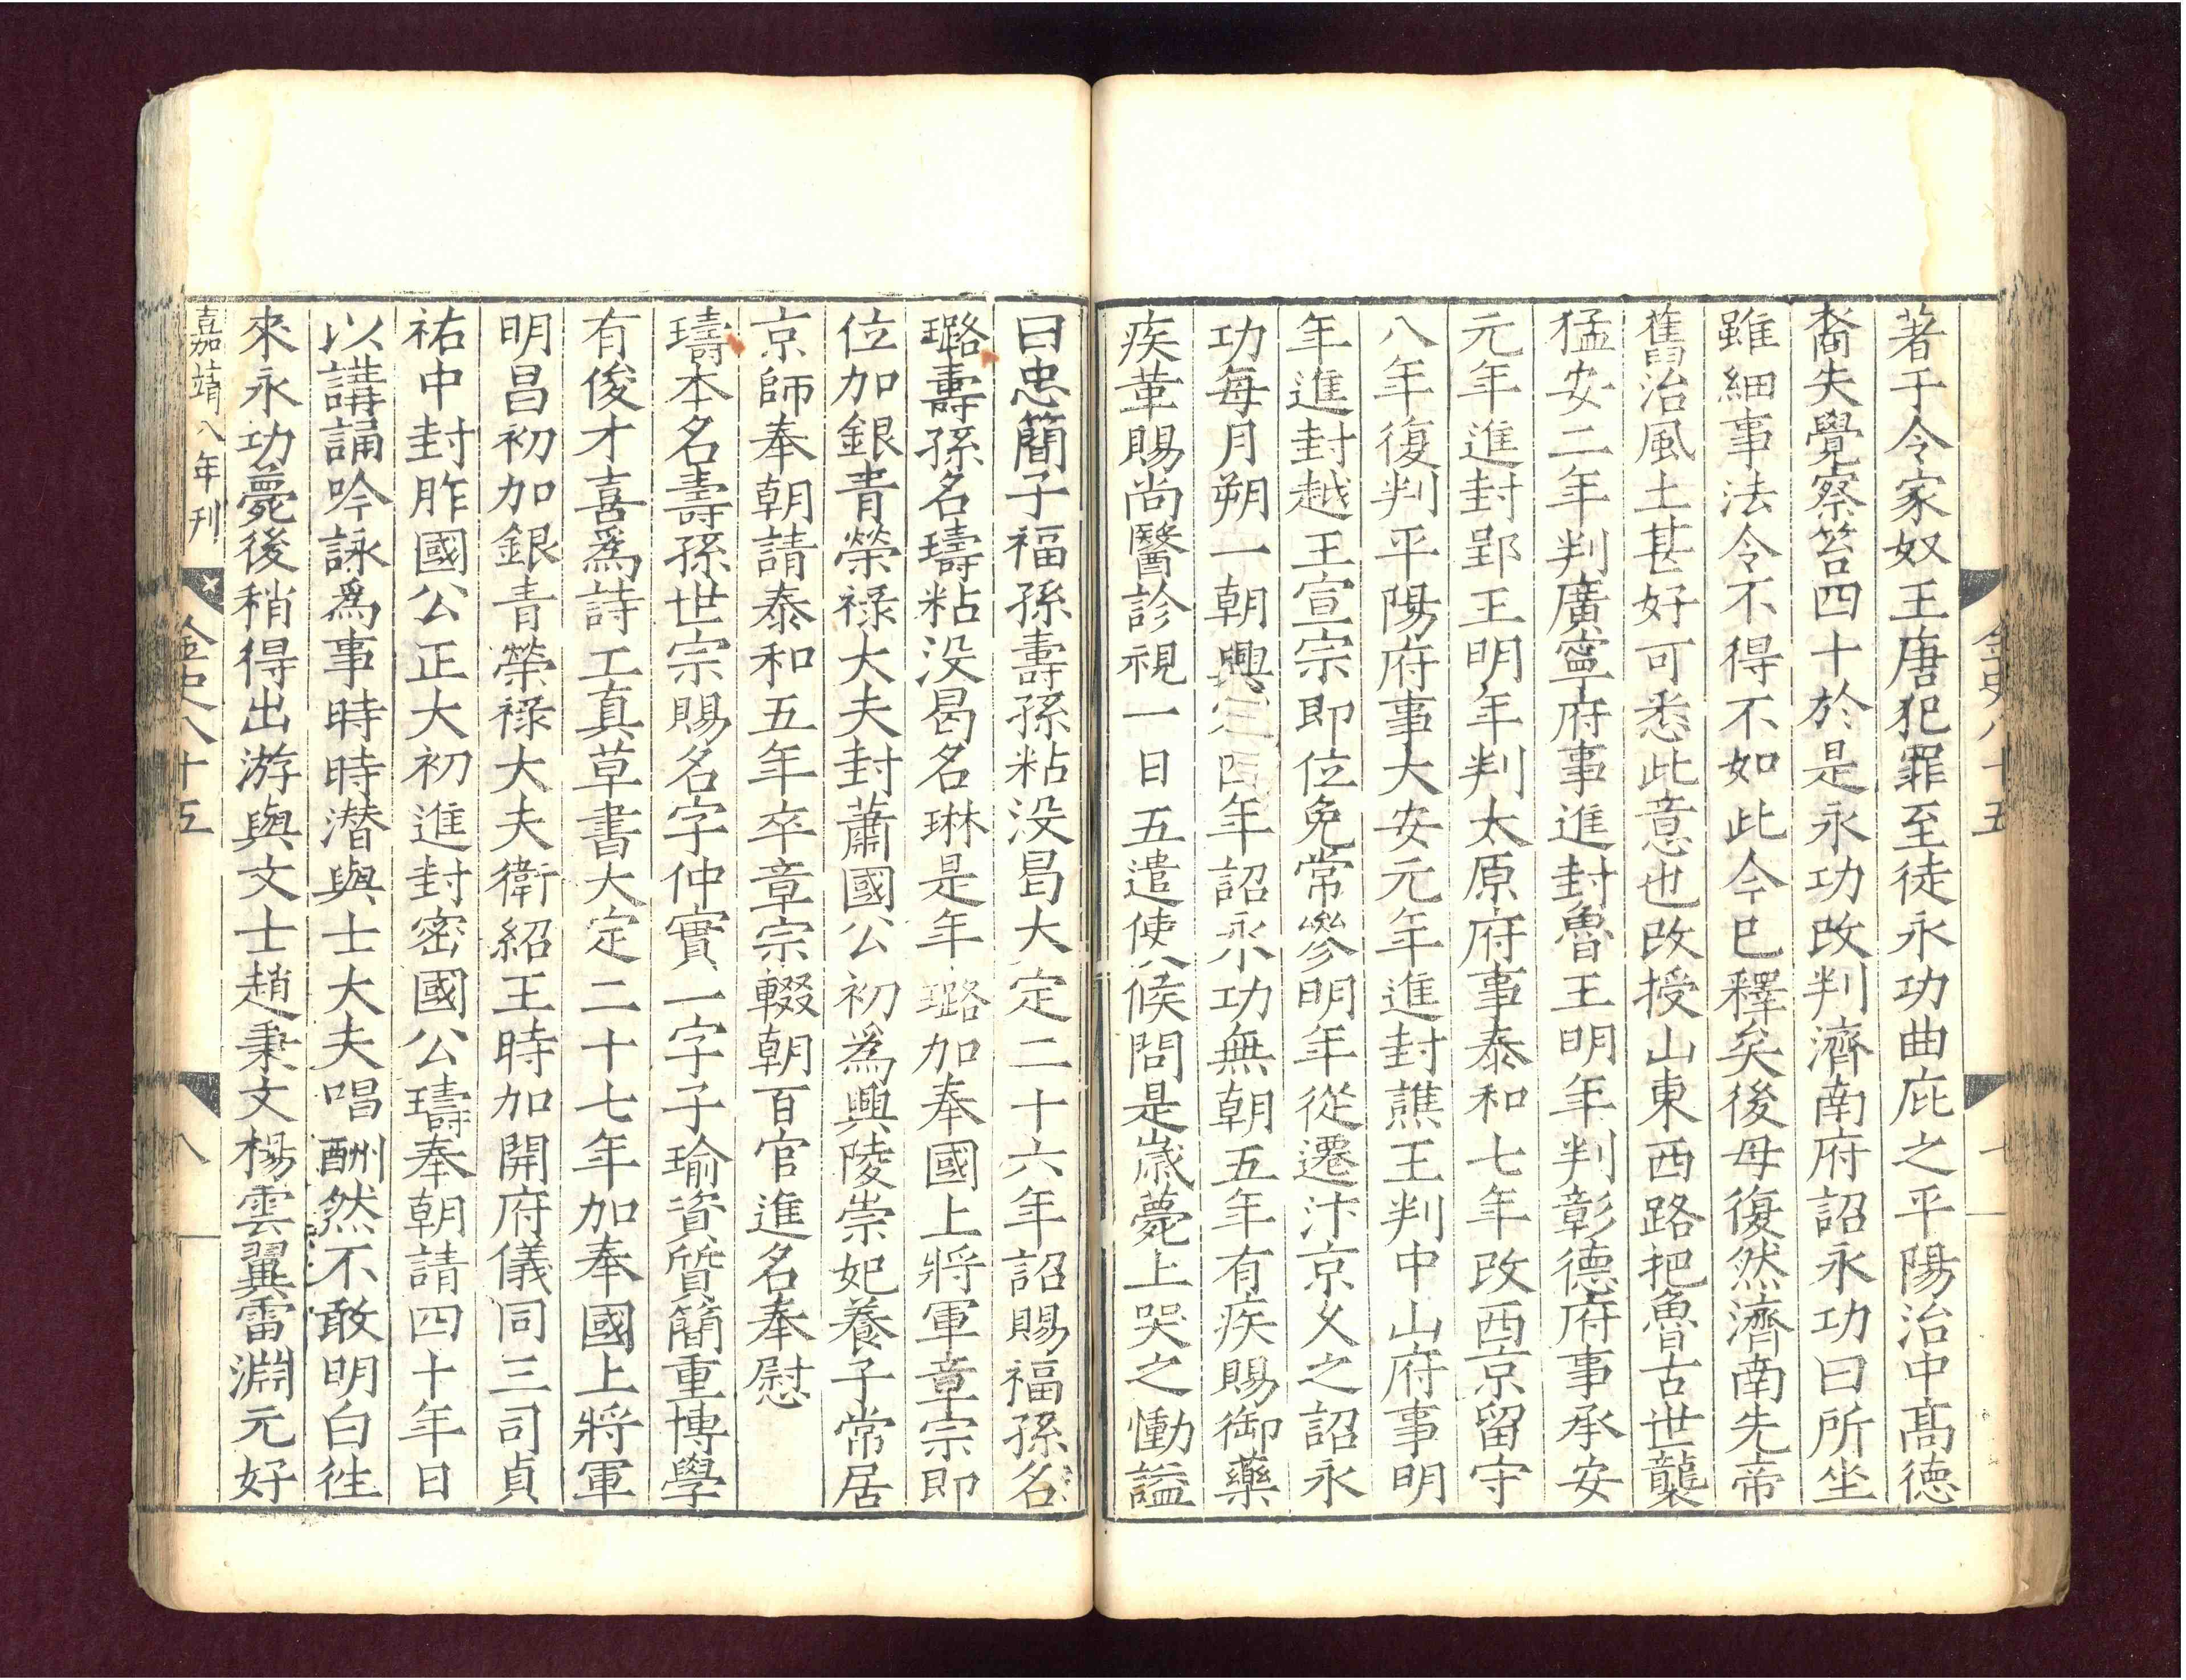 著于令家奴王唐犯罪至徒永功曲庇之平陽治中髙德
裔失覺察笞四十於是永功改判濟南府詔永功曰所坐
雖細事法令不得不如此今已釋矣後毋復然濟南先帝
舊治風土甚好可悉此意也改授山東西路把魯古世襲
猛安二年判廣寧府事進封魯王明年判彰德府事承安
元年進封郢王明年判太原府事泰和七年改西京留守
八年復判平陽府事大安元年進封譙王判中山府事明
年進封越王宣宗即位免常參明年從遷汴京乂之詔永
功每月朔一朝興定四年詔永功無朝五年有疾賜御藥
疾革賜尚醫診視一日五遣使候問是嵗薨上哭之慟謚
金史八十五
七
曰忠簡子福孫壽孫粘没曷大定二十六年詔賜福孫名
璐壽孫名璹粘没曷名琳是年璐加奉國上將軍章宗即
位加銀青榮禄大夫封蕭國公初為興陵崇妃養子常居
京師奉朝請泰和五年卒章宗輟朝百官進名奉慰
璹本名壽孫世宗賜名字仲實一字子瑜資質簡重博學
有俊才喜為詩工真草書大定二十七年加奉國上將軍
明昌初加銀青榮禄大夫衛紹王時加開府儀同三司貞
祐中封胙國公正大初進封密國公璹奉朝請四十年日
以講誦吟詠為事時時潜與士大夫唱酬然不敢明白徃
來永功薨後稍得出游與文士趙秉文楊雲翼雷淵元好
嘉靖八年刊
金史八十五
八